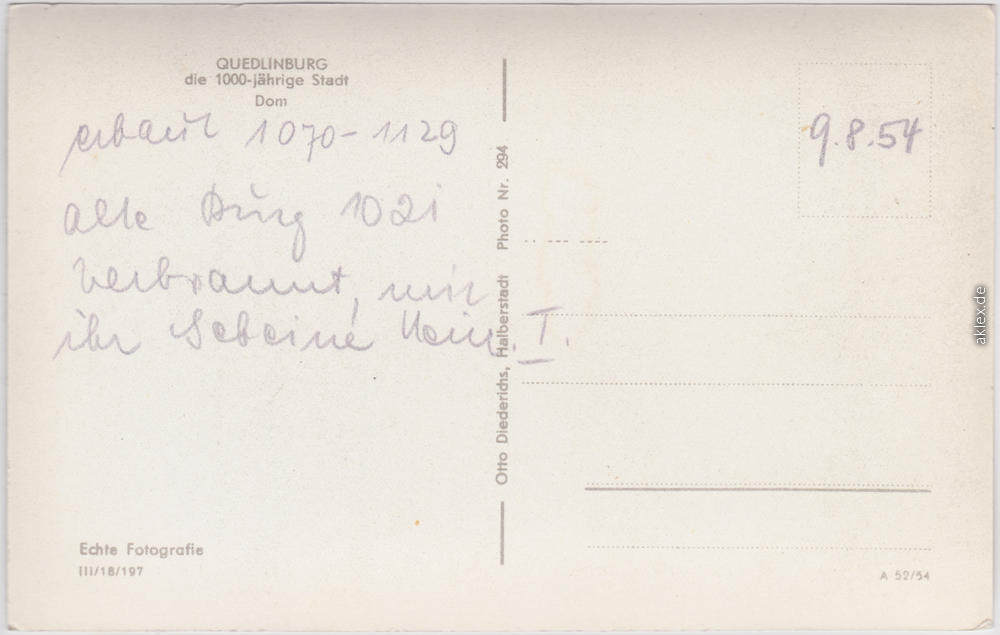 QUEDLINBURG
die 1000-jährige Stadt
Dom
erbaut 1070-1129
alte Burg 1021
verbrannt, mit
ihr Gebeine Hein. I.
9.8.54
Otto Diederichs, Halberstadt Photo Nr. 294
Echte Fotografie
III/18/197
A 52/54
aklex.de